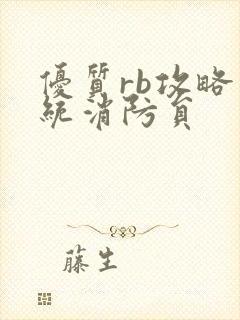 優質rb攻略
統消防員
藤生